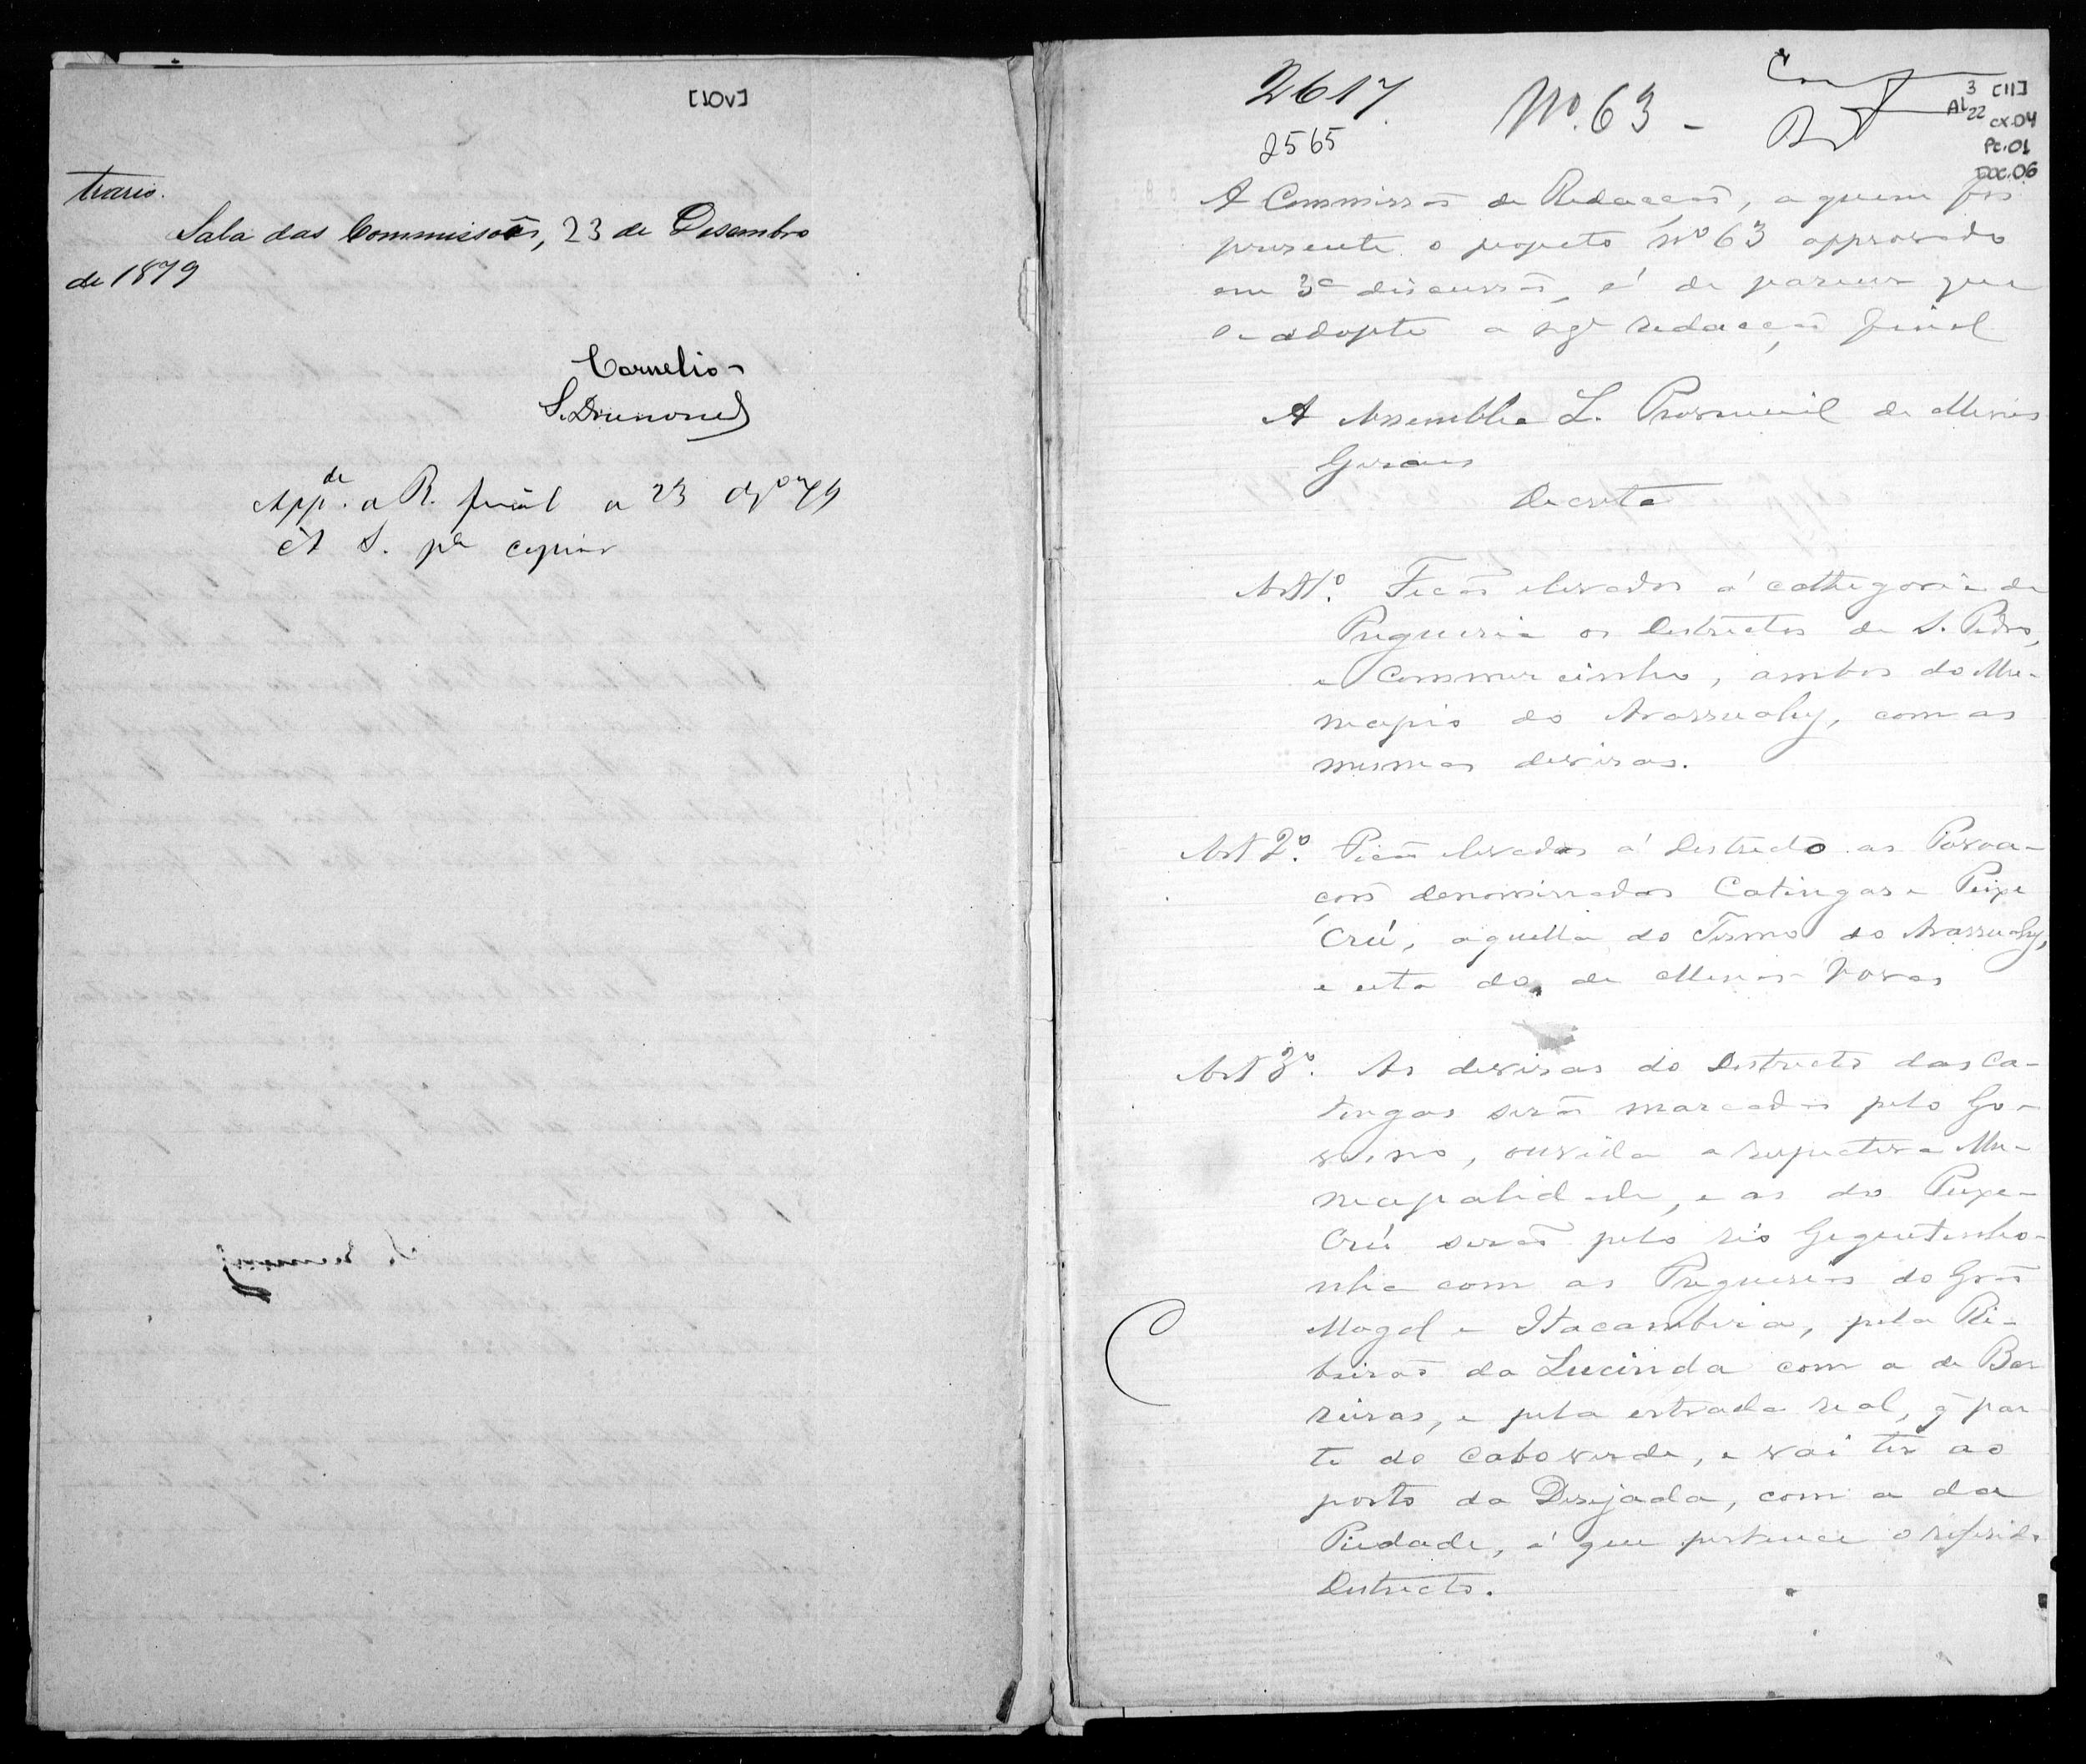 [10v]
trario.
Sala das Commissões, 23 de Desembro
de 1879
Cornelio
S. Drumond
App.de a R. final a 23 Dzbro 79
Á S. pa copiar
2617
2565
Nº. 63 -
3 [11]
AL 22 cx.04
Pc.01
Doc.06
A Commissão de Redacção, a quem foi
presente o projecto Nº 63 approvado
em 3ª discussão, é de parecer que
se adopte a sege redacção final
A Assemblea L. Provincial de Minas
Geraes
Decreta
Art 1º. Ficão elevados á cathegoria de
Freguesia os Destrictos de S. Pedro,
e Commercinho, ambos do Mu-
nicipio do Arassuahy, com as
mesmas devisas.
Art 2º. Ficão elevadas á Destricto as Povoa-
ções denominadas Catingas e Peixe
Crú, aquella do Termo do Arassuahy,
e esta do de Minas Novas
Art 3º. As devisas do Destricto das Ca-
tingas serão marcadas pelo Go-
verno, ouvida a respectiva Mu-
nicipalidade, e as do Peixe-
Crú serão pelo rio Gequitinho-
nha com as Freguesias do Grão
Mogol e Itacambira, pelo Ri-
beirão da Lucinda com a de Bar
reiras, e pela estrada real, q̃ par-
te do Caboverde, e vai ter ao
porto da Desejada, com a da
Piedade, á que pertence o referido
Destricto.